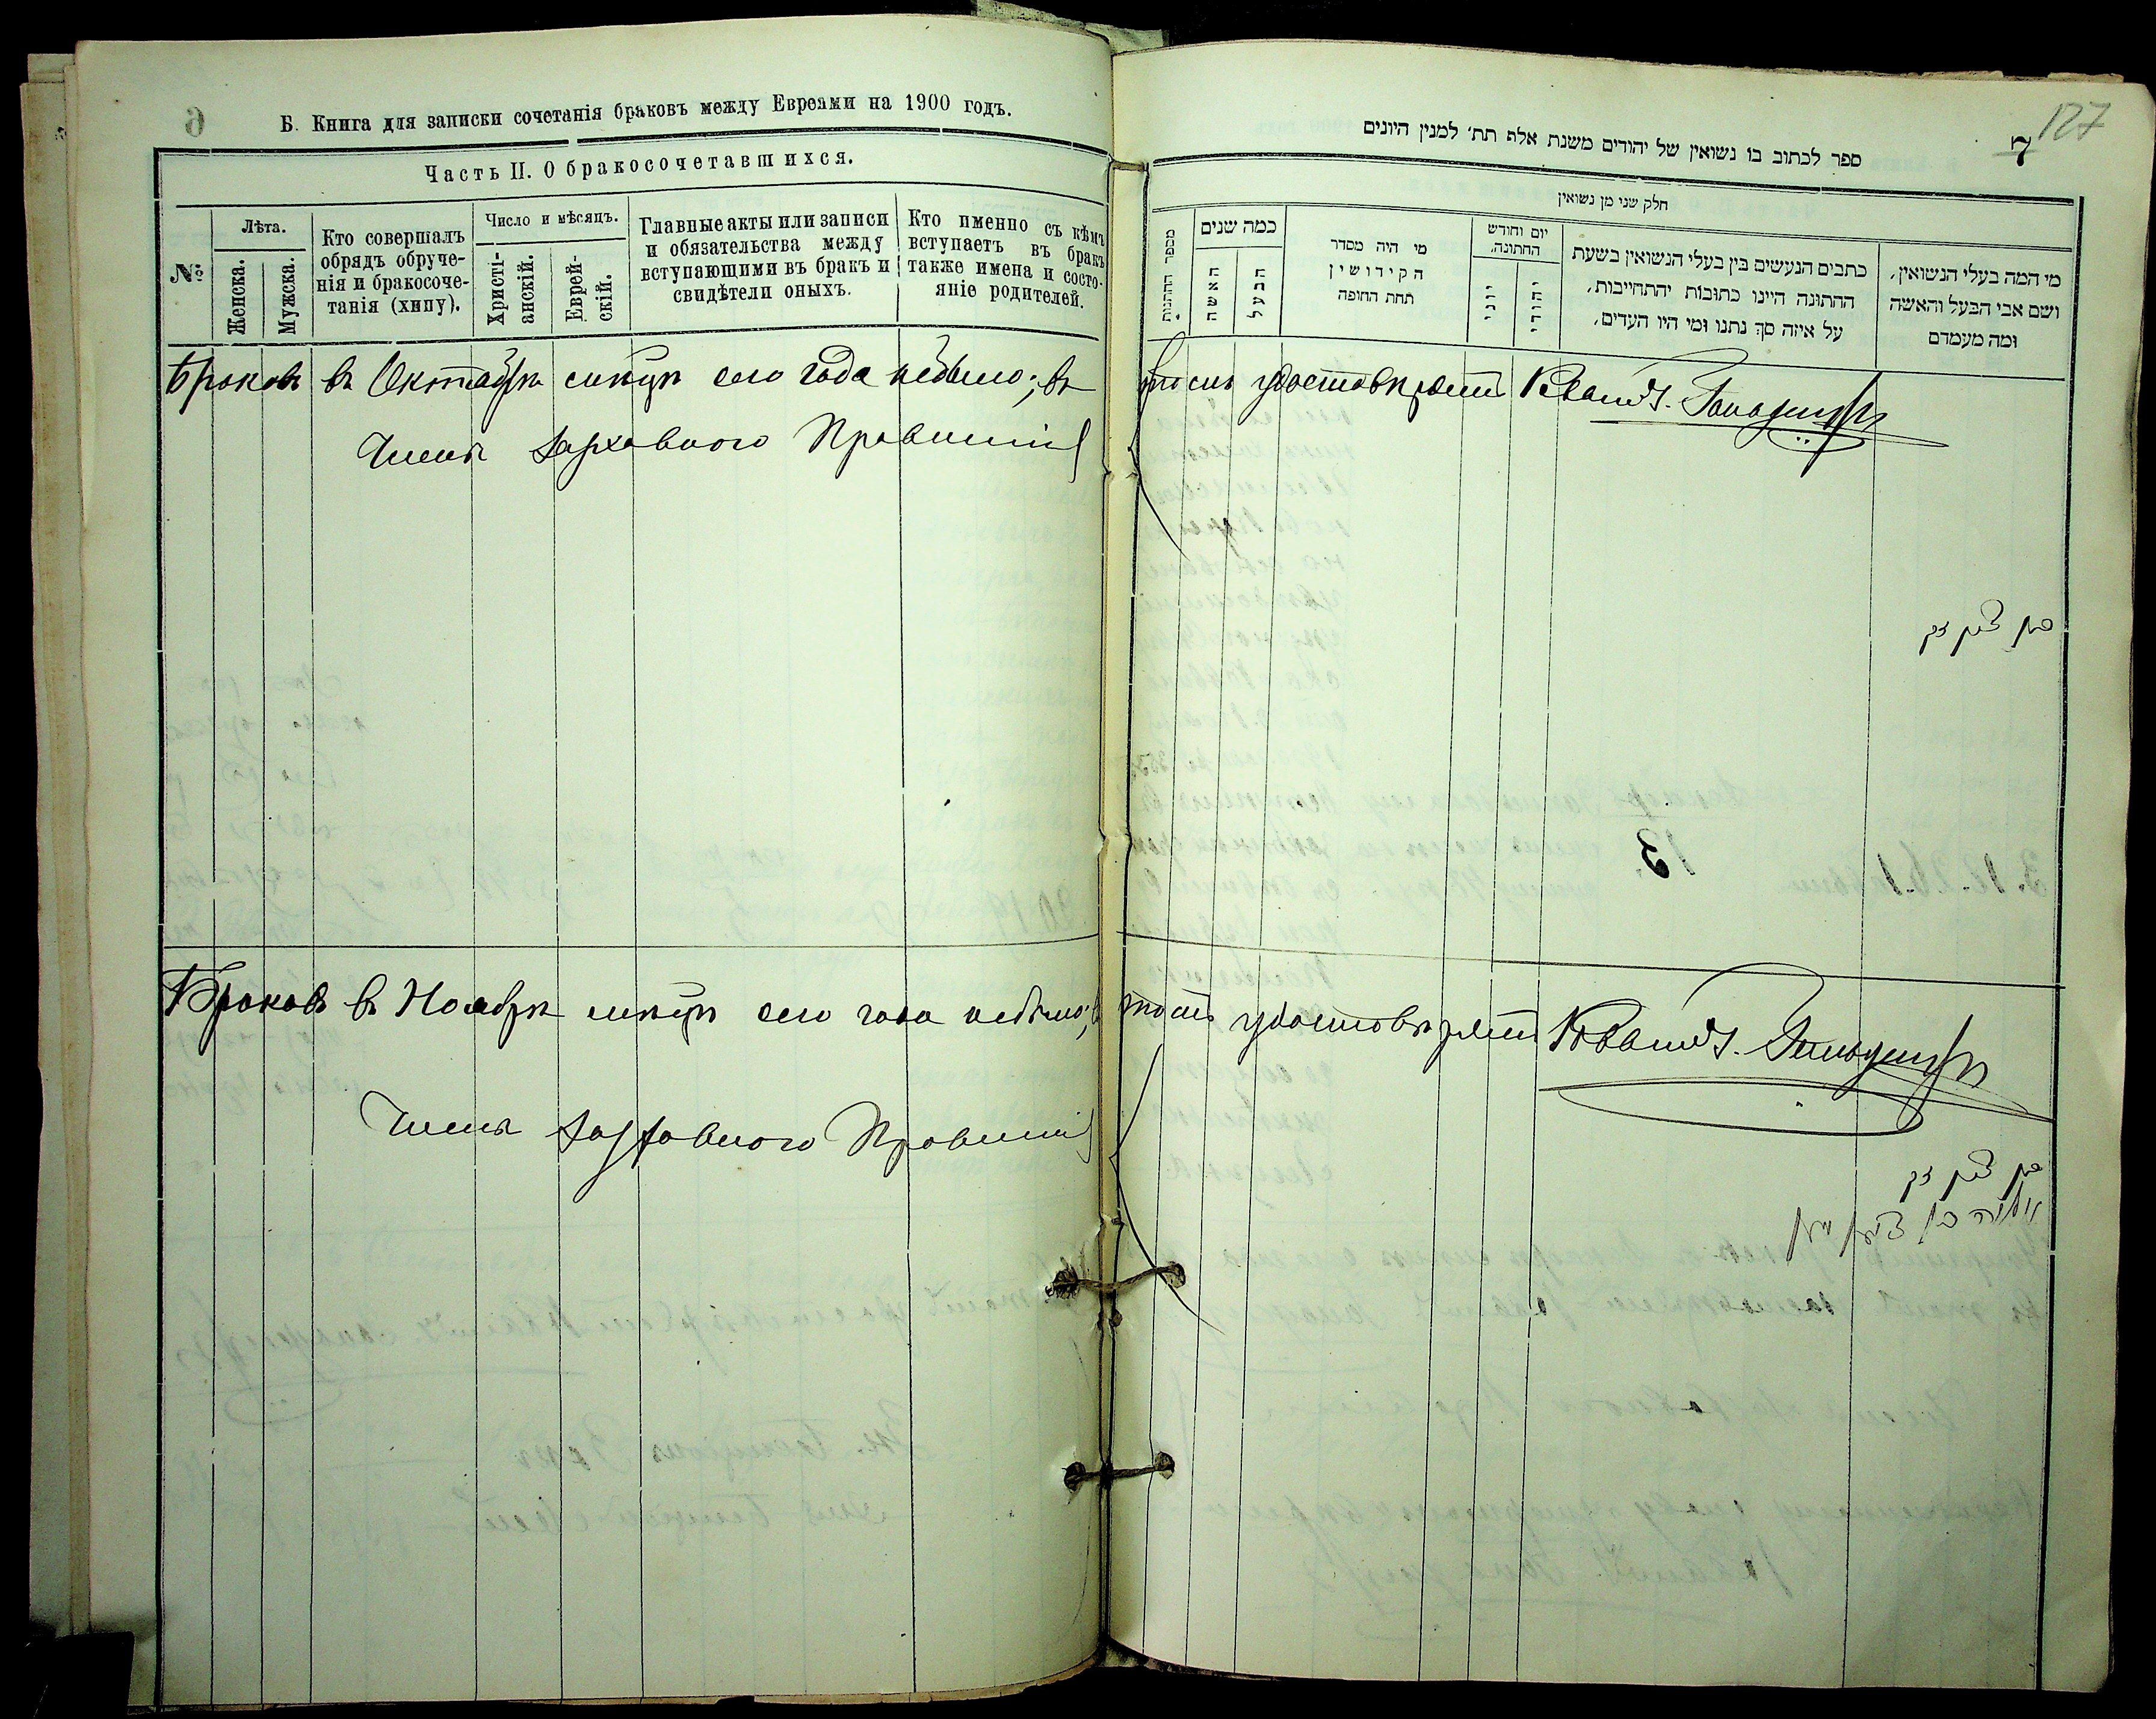 6
Б. Книга для записки сочетанія браковъ между Евреами на 1900 годъ.
Часть II. О бракосочетавшихся.
№
Лѣта.
Женска.
Мужска.
Кто совершалъ
обрядъ обруче-
нія и бракосоче-
танія (хипу).
Число и мѣсяцъ.
Христі-
анскій.
Еврей-
скій.
Главные акты или записи
и обязательства между
вступающими въ бракъ и
свидѣтели оныхъ.
Кто именно съ кѣмъ
вступаетъ въ бракъ
также имена и состо-
яніе родителей.
Браковъ въ Октябрѣ мѣсяцѣ сего года небыло; въ
Члены Духовного Правленія
Браковъ въ Ноябрѣ мѣсяцѣ сего года небыло; въ
Члены Духовного Правленія
127
7
ספר לכתוב בו נשואין של יהודים משנת אלף תת׳ למנין היונים
חלק שני מן נשואין
מספר החתונות
כמה שנים
האשה
הבעל
מי היה מסדר
הקידושין
תחת החופה
יום וחודש
החתונה.
יוני
יהודי
כתבים הנעשים בין בעלי הנשואין בשעת
החתונה היינו כתובות יהתחייבות,
על איזה סך נתנו ומי היו העדים,
מי המה בעלי הנשואין,
ושם אבי הבעל והאשה
ומה מעמדם
томъ удостовѣряетъ
томъ удостовѣряетъ